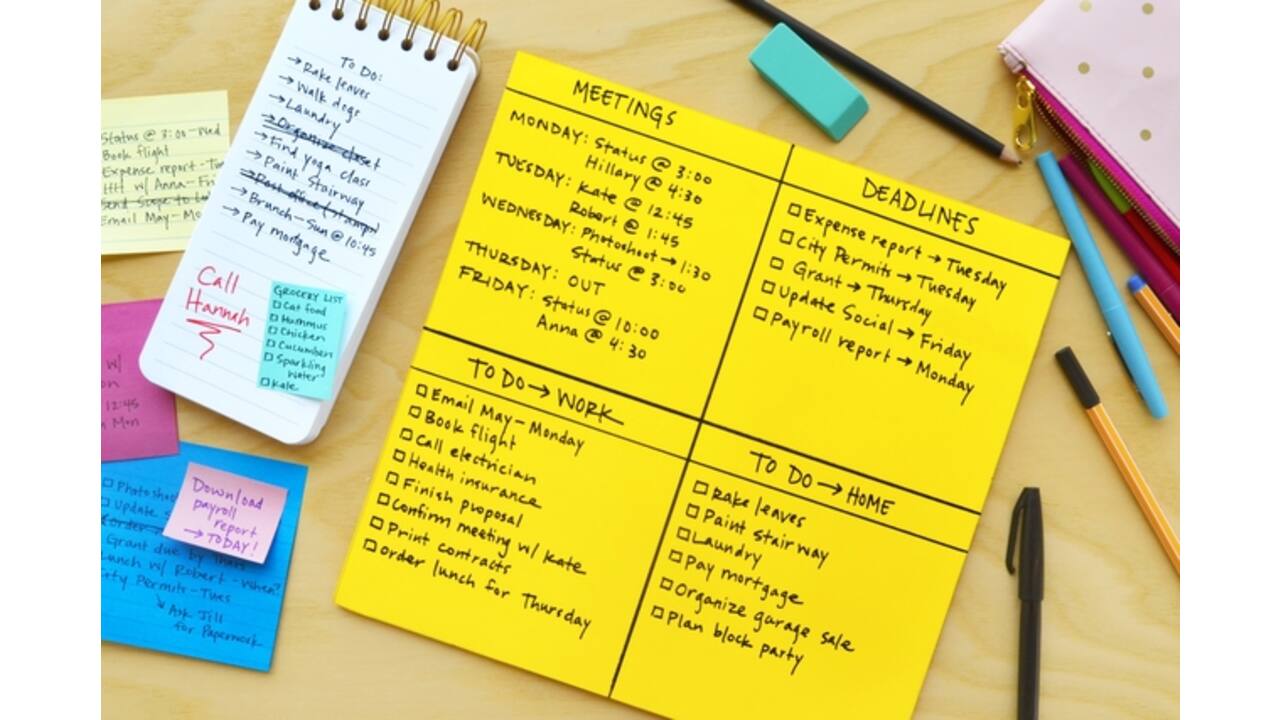 Status @ 3:00-Wed
Book flight
Expense report-Tue
w/ Anna-Fri
Send Scope to
Email May-Mo
To Do:
→Rake leaves
→Walk dogs
→Laundry
→Organize closet
→Find yoga class
→Paint Stairway
→Post office (stamps)
→Brunch-Sun @ 10:45
→Pay mortgage
Call
Hannah
GROCERY LIST
□ Cat food
□ Hummus
□ Chicken
□ Cucumbers
□ Sparkling
Water
□ Kale
w/
on
12:45
Mon
□ Photoshoot
□ Update
Order
Grant due by Thurs
Lunch w/ Robert-when?
City Permits-Tues
↘ Ask Jill
for Paperwork
Download
payroll
report
→TODAY!
MEETINGS
MONDAY: Status @ 3:00
Hillary @ 4:30
TUESDAY: Kate @ 12:45
Robert @ 1:45
WEDNESDAY: Photoshoot → 1:30
Status @ 3:00
THURSDAY: OUT
FRIDAY: Status @ 10:00
Anna @ 4:30
DEADLINES
□ Expense report → Tuesday
□ City Permits → Tuesday
□ Grant → Thursday
□ Update Social → Friday
□ Payroll report → Monday
TO DO → WORK
□ Email May-Monday
□ Book flight
□ Call electrician
□ Health insurance
□ Finish proposal
□ Confirm meeting w/ Kate
□ Print contracts
□ Order lunch for Thursday
TO DO → HOME
□ Rake leaves
□ Paint stairway
□ Laundry
□ Pay mortgage
□ Organize garage sale
□ Plan block party